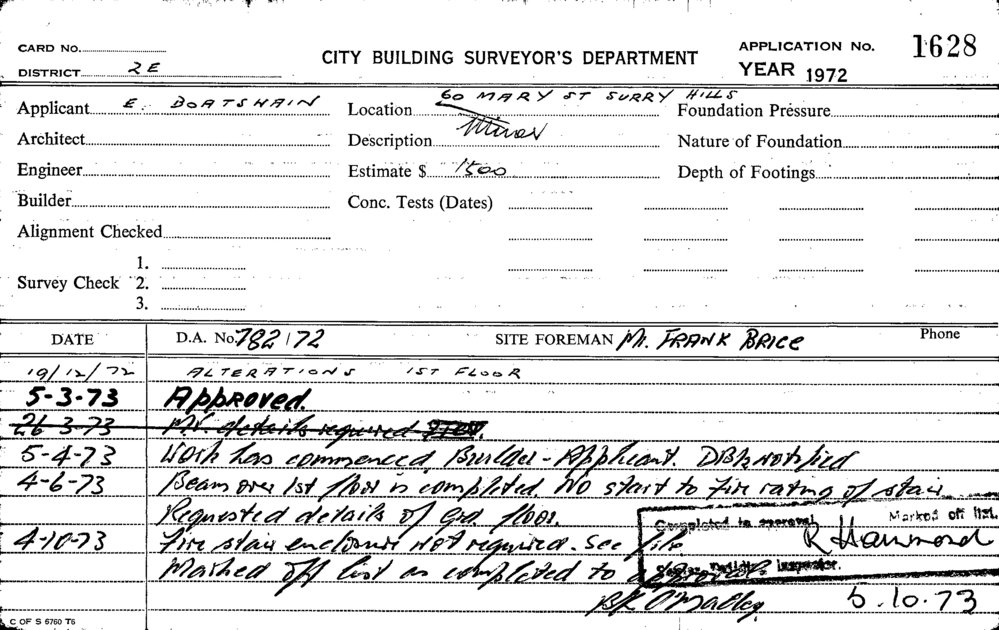 CARD NO.
CITY BUILDING SURVEYOR'S DEPARTMENT
APPLICATION No. 1628
DISTRICT 2E
YEAR 1972
Applicant E. BOATSWAIN
Location 60 MARY ST SURRY HILLS
Foundation Pressure
Architect
Description Minor
Nature of Foundation
Engineer
Estimate $ 1500
Depth of Footings
Builder
Conc. Tests (Dates)
Alignment Checked
Survey Check
1.
2.
3.
DATE
D.A. No. 782/72
SITE FOREMAN Mr. FRANK BRICE
Phone
19/12/72 ALTERATIONS 1ST FLOOR
5-3-73 Approved.
26-3-73 details required
5-4-73 Work has commenced, Builder-Applicant. notified
4-6-73 Beam over 1st floor is completed. No start to fire rating of stair.
Requested details of Grd. floor.
4-10-73 Fire stair enclosure not required. See file
Marked off list as completed to approval
Completed to approval
Marked off list.
R Hammond
Building Inspector.
BK O'Malley
5.10.73
C OF S 6760 T6